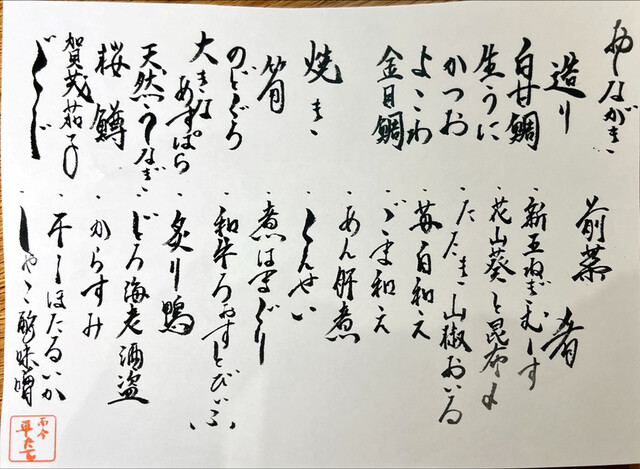 おしながき
造り
白甘鯛
生うに
かつお
よこわ
金目鯛
焼き
筍
のどぐろ
大きなあすぱら
天然うなぎ
桜鱒
賀茂茄子
ぐじ
前菜 肴
・新玉ねぎむーす
・花山葵と昆布〆
・たたき山椒おいる
・苺白和え
・ごま和え
・あん肝煮
・くんせい
・煮はまぐり
・和牛ろおすとびいふ
・炙り鴨
・どろ海老酒盗
・からすみ
・干しほたるいか
・しゃこ酢味噌